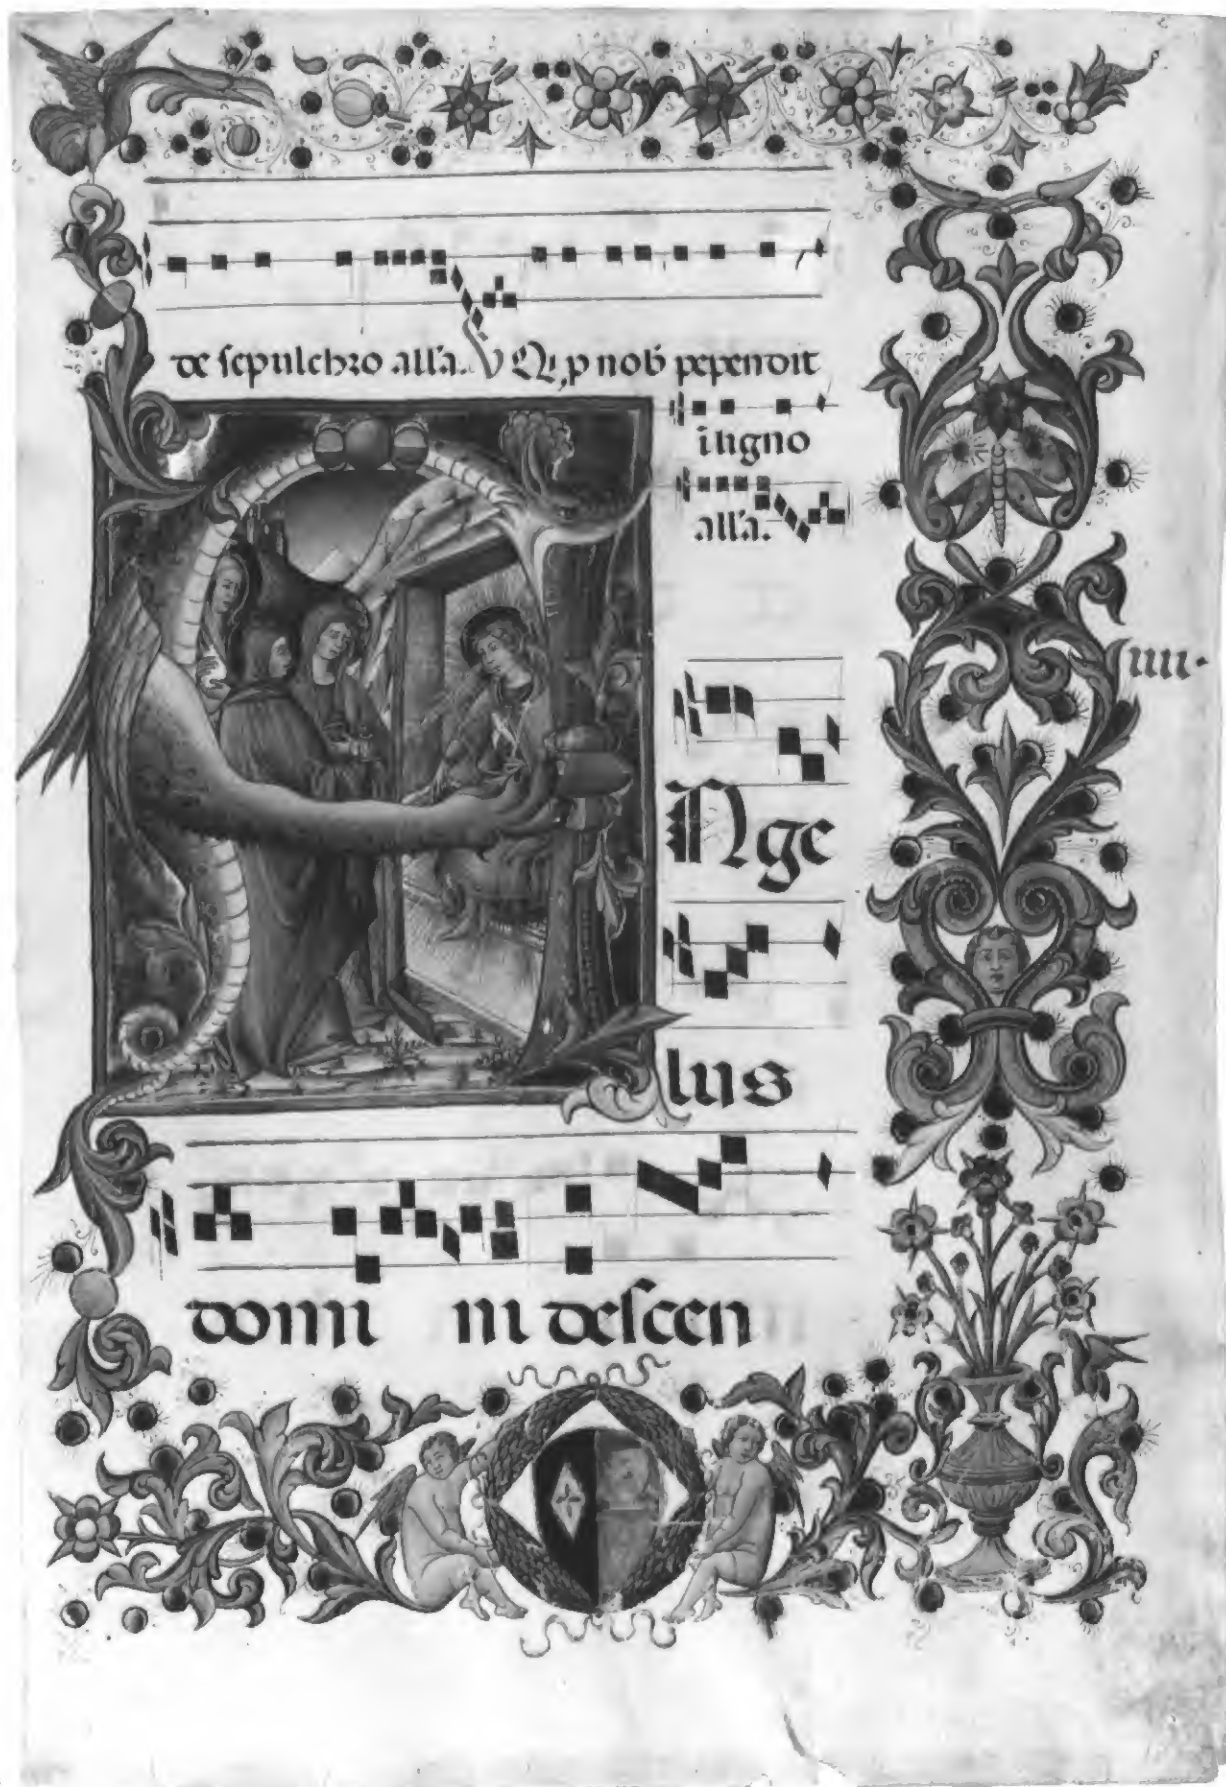 de sepulchro all'a. V Qi p nob pependit
in ligno
all'a.
IIII.
Nge
lus
domi ni descen